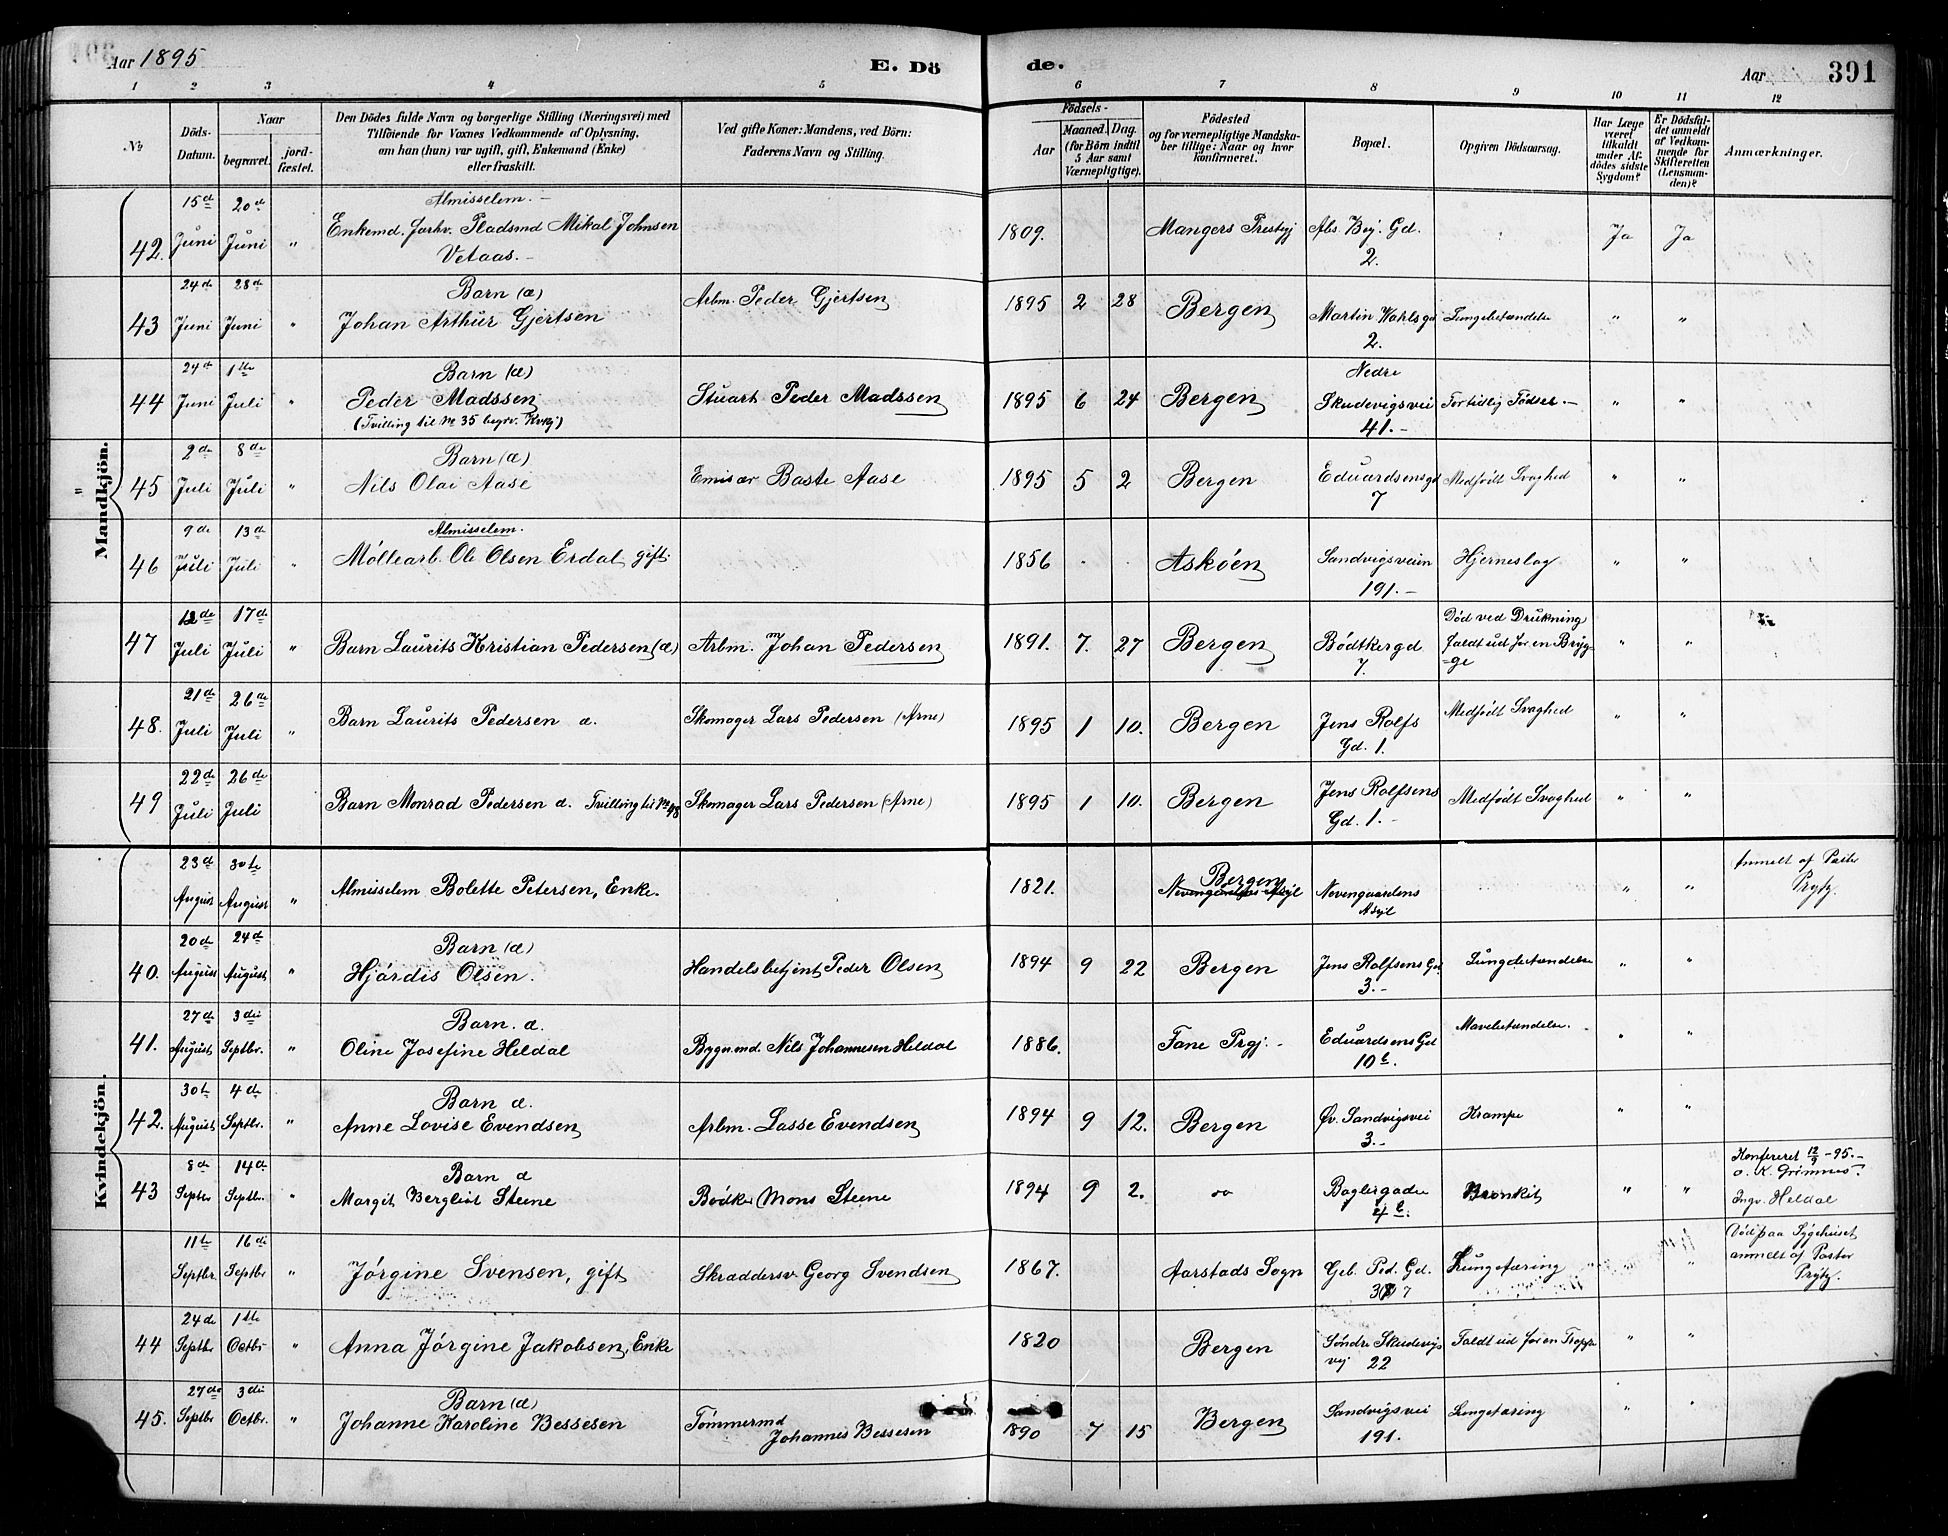 Aar 1895 E. Dö de. Aar 391
1 2 3 4 5 6 7 8 9 10 11 12
№
Döds-Datum.
Naar
begravet.
jord-fæstet.
Den Dödes fulde Navn og borgerlige Stilling (Næringsvei) med
Tilföiende for Voxnes Vedkommende af Oplysning,
om han (hun) var ugift, gift, Enkemand (Enke)
eller fraskilt.
Ved gifte Koner: Mandens, ved Börn:
Faderens Navn og Stilling.
Födsels-
Aar
Maaned. Dag.
(for Börn indtil
5 Aar samt
Værnepligtige).
Födested
og for værnepligtige Mandska-
ber tillige: Naar og hvor
konfirmeret.
Bopæl.
Opgiven Dödsaarsag.
Har Læge
været
tilkaldt
under Af-
dödes sidste
Sygdom?
Er Dödsfal-
det anmeldt
af Vedkom-
mende for
Skifteretten
(Lensman-
den)?
Anmærkninger.
Mandkjön.
42. 15d Juni 20d Juni " Almisselem. -
Enkemd. forhv. Pladsmd Mikal Johnsen
Vetaas. -
1809. Mangers Prestgj Abs. Bej. Gd.
2. Ja Ja
43 24d Juni 28d Juni " Barn (æ)
Johan Arthur Gjertsen Arbm. Peder Gjertsen 1895 2 28 Bergen Martin Wahlsgd
2. Lungebetændelse " "
44 24d Juni 1ste Juli " Barn (æ)
Peder Madssen
(Tvilling til № 35 begrv. Kvkj) Stuart Peder Madssen 1895 6 24 Bergen Nedre
Skudevigsvei
41. - Fortidlig Födsel - " "
45 2de Juli 8de Juli " Barn (æ)
Nils Olai Aase Emisær Baste Aase 1895 5 2 Bergen Eduardsensgd
7 Medfödt Svaghed " "
46 9de Juli 13d Juli " Almisselem.
Möllearb. Ole Olsen Erdal, gift. 1856 Asköen Sandvigsveien
191. - Hjerneslag " "
47 12de Juli 17d Juli " Barn Laurits Kristian Pedersen (æ) Arbm. Johan Pedersen 1891. 7. 27 Bergen Bödtkergd
7. Död ved Drukning
faldt ud for en Bryg-
=ge " "
48. 21d Juli 26de Juli " Barn Laurits Pedersen æ. Skomager Lars Pedersen (Arne) 1895 1 10. Bergen Jens Rolfs
Gd. 1. Medfödt Svaghed " "
49 22de Juli 26de Juli Barn Monrad Pedersen æ. Tvilling til № 48 Skomager Lars Pedersen (Arne) 1895 1 10. Bergen Jens Rolfsens
Gd. 1. - Medfödt Svaghed " "
Kvindekjön.
23d August 30te August " Almisselem Bolette Petersen, Enke. 1821. Bergen
Nevengaardens Asyl Nevengaardens
Asyl " " Anmelt af Pastor
Prytz.
40. 20de August 24d August " Barn (æ)
Hjördis Olsen. Handelsbetjent Peder Olsen 1894 9 22 Bergen Jens Rolfsens Gd
3. - Lungebetændelse " "
41. 27de August 3die Septbr. " Barn. æ.
Oline Josefine Heldal Bygnmd. Nils Johannesen Heldal 1886. Fane Prgj. - Eduardsens Gd
10 b. Mavebetændelse. " "
42. 30te August 4de Septbr. " Barn æ.
Anne Lovise Evendsen Arbm. Lasse Evendsen 1894 9 12. Bergen Øv. Sandvigsvei
3. - Krampe " "
43 8de Septbr 14d Septbr. " Barn æ
Margit Bergliot Steene Bödker Mons Steene 1894 9 2. " Baglergaden
4 b. Bronkit " " Konfereret 12/9 - 95. -
o. K. Grimnes.
Ingv. Heldal
11te Septbr. 16de Septbr " Jörgine Svensen, gift Skraddersv. Georg Svendsen 1867. Aarstads Sogn Geb. Ped. Gd.
37 Lungetæring " " Död paa Sygehuset
anmelt af Pastor
Prytz.
44 24de Septbr 1ste Octbr " Anna Jörgine Jakobsen, Enke 1820 Bergen Söndre Skudevigs
vej 22 Faldt ud for en Trappe " "
45. 27de Septbr 3die Octbr. " Barn (æ)
Johanne Karoline Bessesen Tömmermd
Johannes Bessesen 1890 7 15 Bergen Sandvigsvei
191. Lungetæring " "